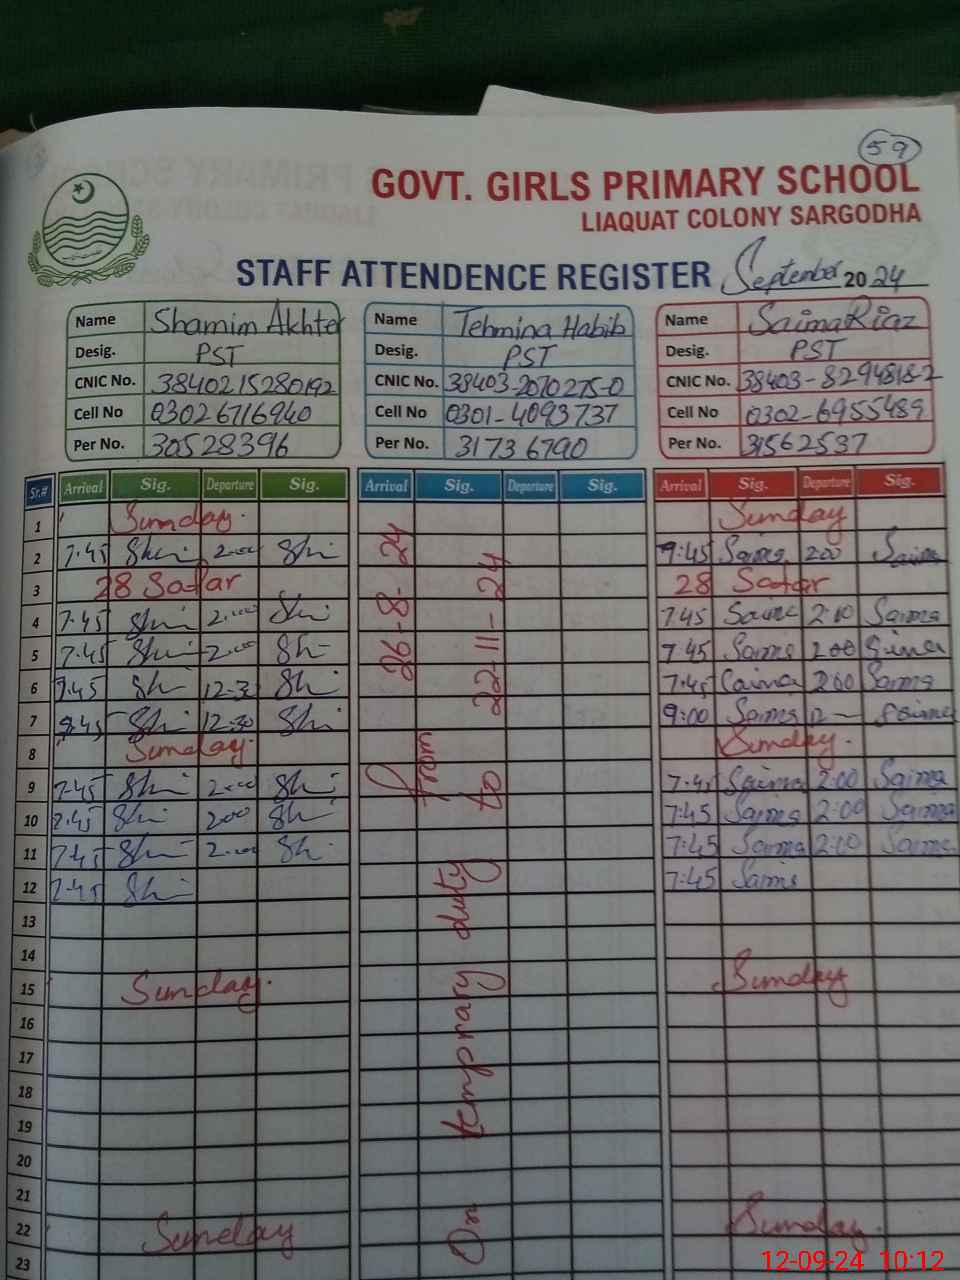 59
GOVT. GIRLS PRIMARY SCHOOL
LIAQUAT COLONY SARGODHA
STAFF ATTENDENCE REGISTER September 2024
Name Shamim Akhter Name Tehmina Habib Name Saima Riaz
Desig. PST Desig. PST Desig. PST
CNIC No. 3840215280192 CNIC No. 38403-2070275-0 CNIC No. 38403-8294818-2
Cell No 03026716940 Cell No 0301-4093737 Cell No 0302-6955489
Per No. 30528396 Per No. 31736790 Per No. 31562537
Sr.# Arrival Sig. Departure Sig. Arrival Sig. Departure Sig. Arrival Sig. Departure Sig.
1 Sunday. Sunday
2 7.45 Shi 2.00 Shi 9:45 Saima 200 Saima
3 28 Safar 28 Safar
4 7.45 Shi 2.00 Shi 7.45 Saima 2:00 Saima
5 7.45 Shi 2.00 Shi 7.45 Saima 2:00 Saima
6 7.45 Shi 12.30 Shi 7.45 Saima 200 Saima
7 Shi 12.30 Shi 9:00 Saima Saima
8 Sunday. Sunday.
9 7.45 Shi 2.00 Shi 7.45 Saima 2:00 Saima
10 7.45 Shi 200 Shi 7:45 Saima 2:00 Saima
11 7.45 Shi 2.00 Shi 7:45 Saima 2:00 Saima
12 7.45 Shi 7:45 Saima
13
14
15 Sunday. Sunday
16
17
18
19
20
21
22 Sunday Sunday.
23
On temprary duty from 26-8-24
to 22-11-24
12-09-24 10:12